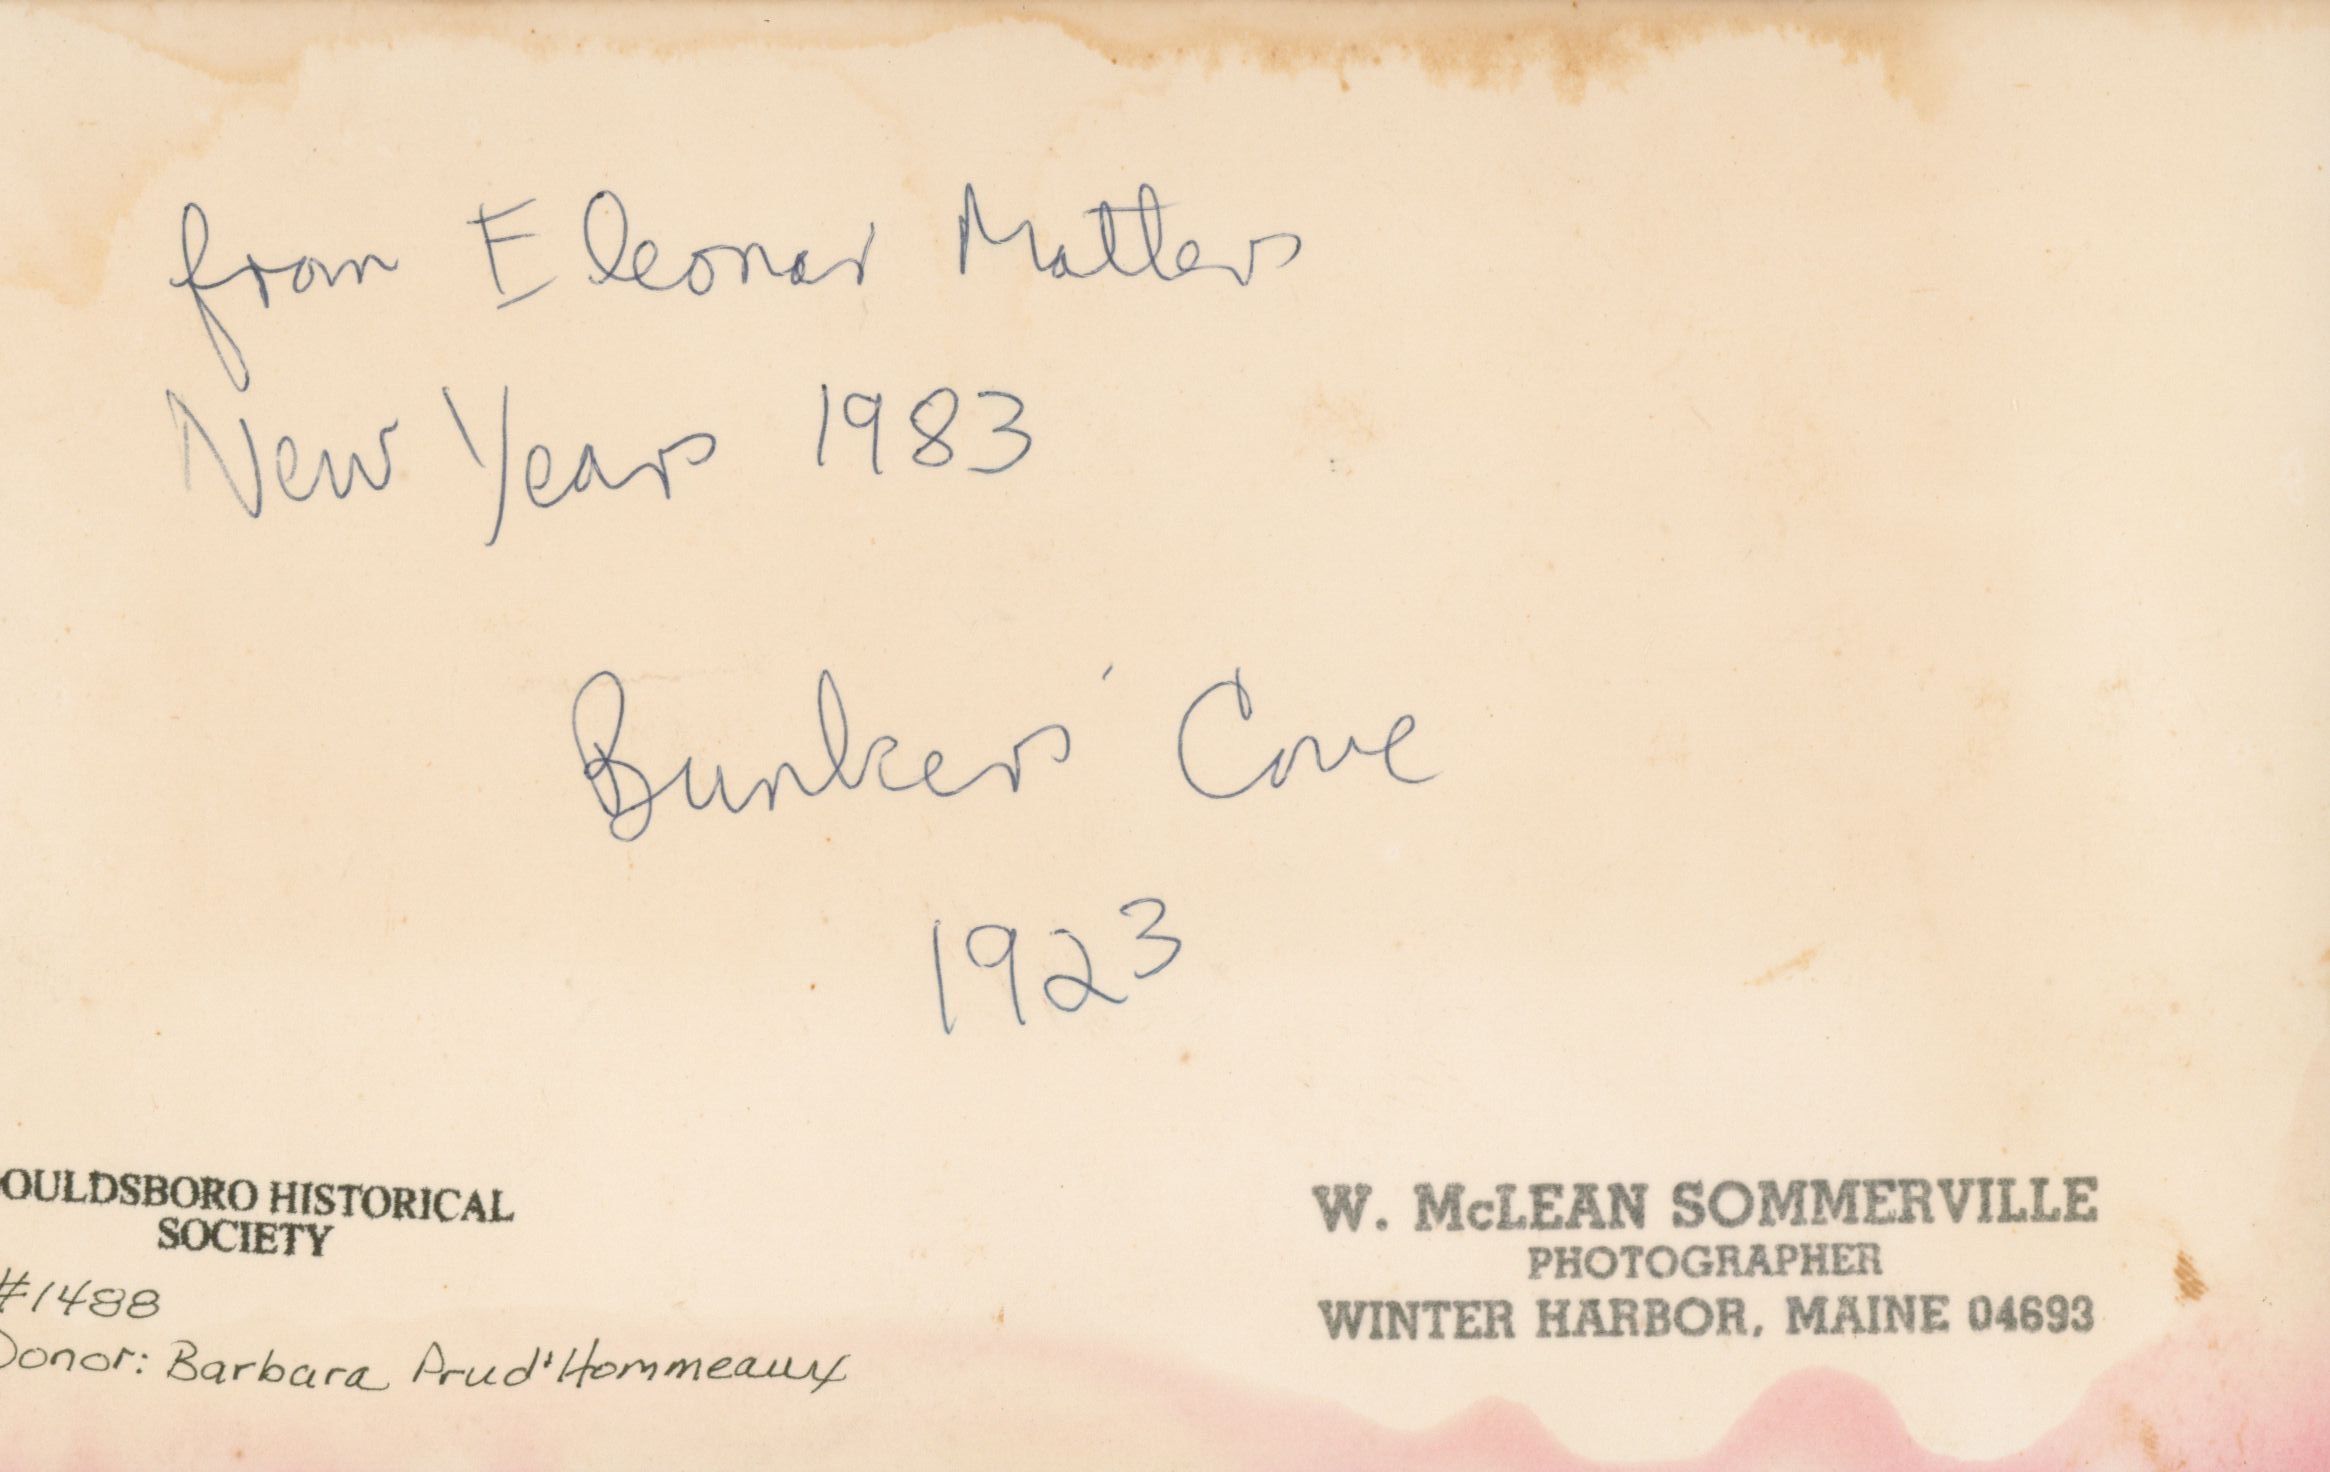 from Eleonor Matters
New Years 1983
Bunkers' Cove
1923
OULDSBORO HISTORICAL
SOCIETY
#1488
Donor: Barbara Prud'Hommeaux
W. McLEAN SOMMERVILLE
PHOTOGRAPHER
WINTER HARBOR, MAINE 04693